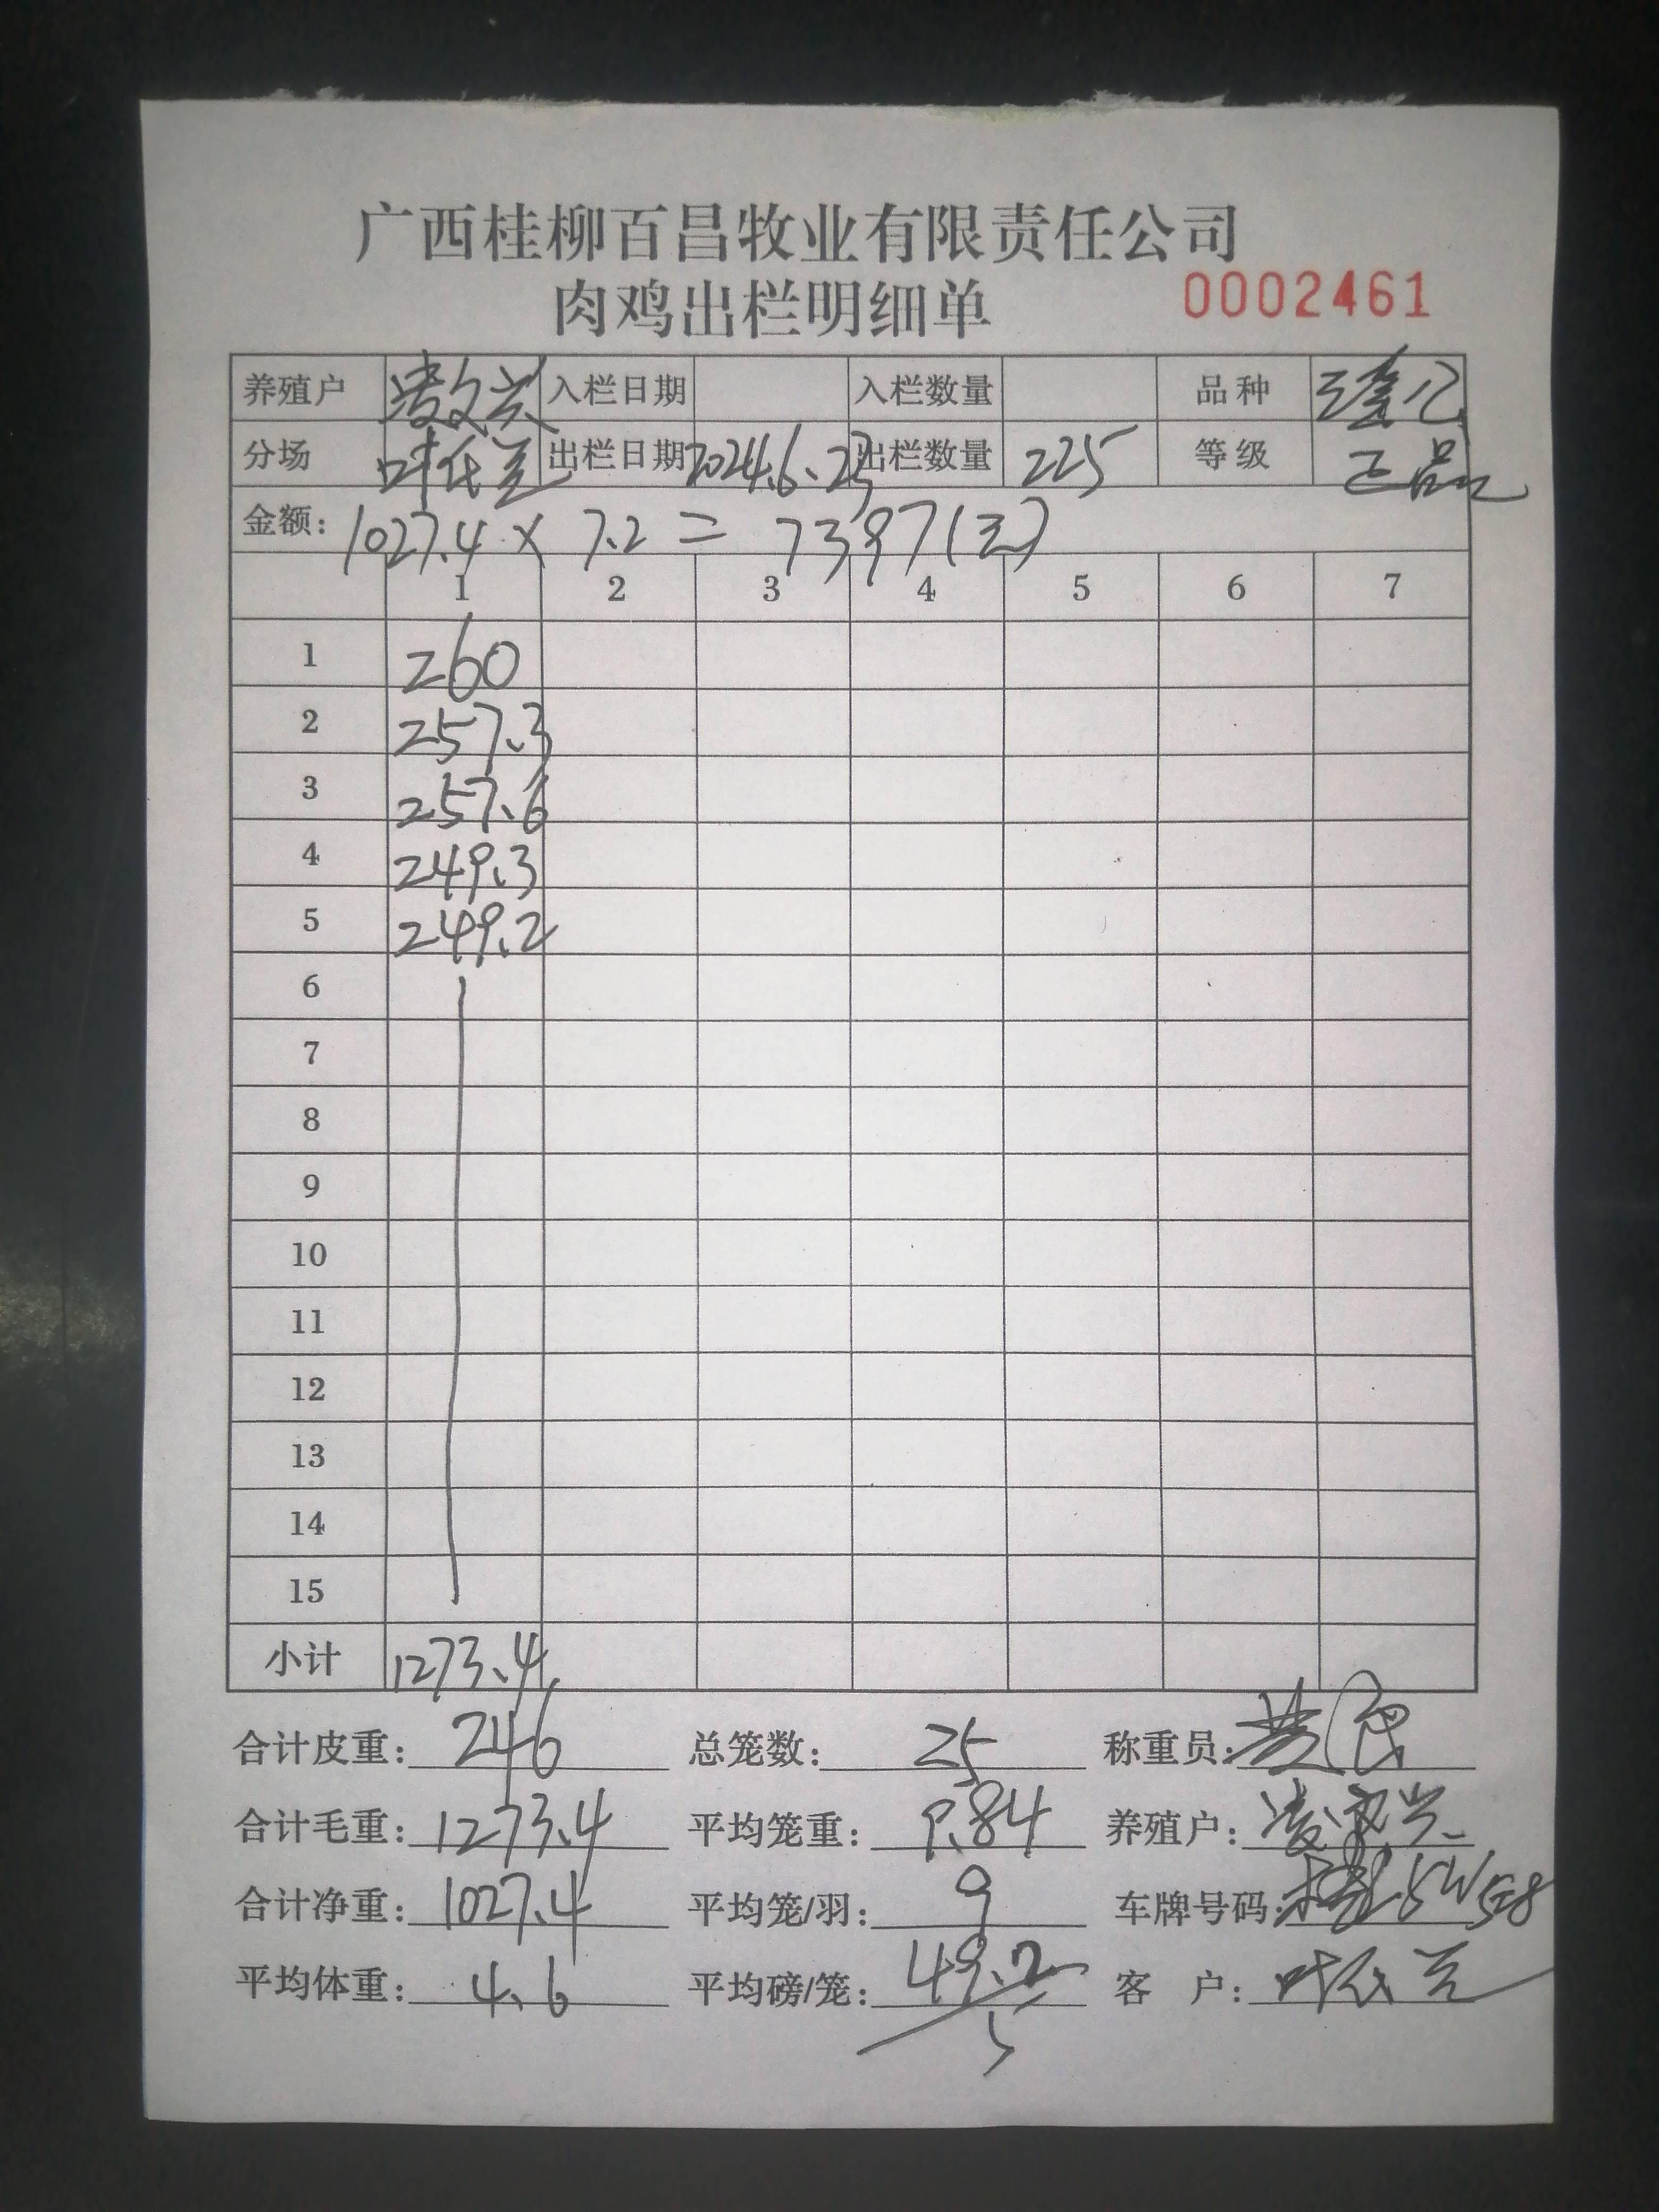 广西桂柳百昌牧业有限责任公司
肉鸡出栏明细单 0002461
养殖户 入栏日期 入栏数量 品种
分场 出栏日期 2024.6.23 出栏数量 225 等级 正品
金额: 1027.4 × 7.2 = 7397(元)
1 2 3 4 5 6 7
1 260
2 257.3
3 257.6
4 249.3
5 249.2
6
7
8
9
10
11
12
13
14
15
小计 1273.4
合计皮重: 246 总笼数: 25 称重员:
合计毛重: 1273.4 平均笼重: 9.84 养殖户:
合计净重: 1027.4 平均笼/羽: 9 车牌号码:
平均体重: 4.6 平均磅/笼: 49.2/5 客 户: